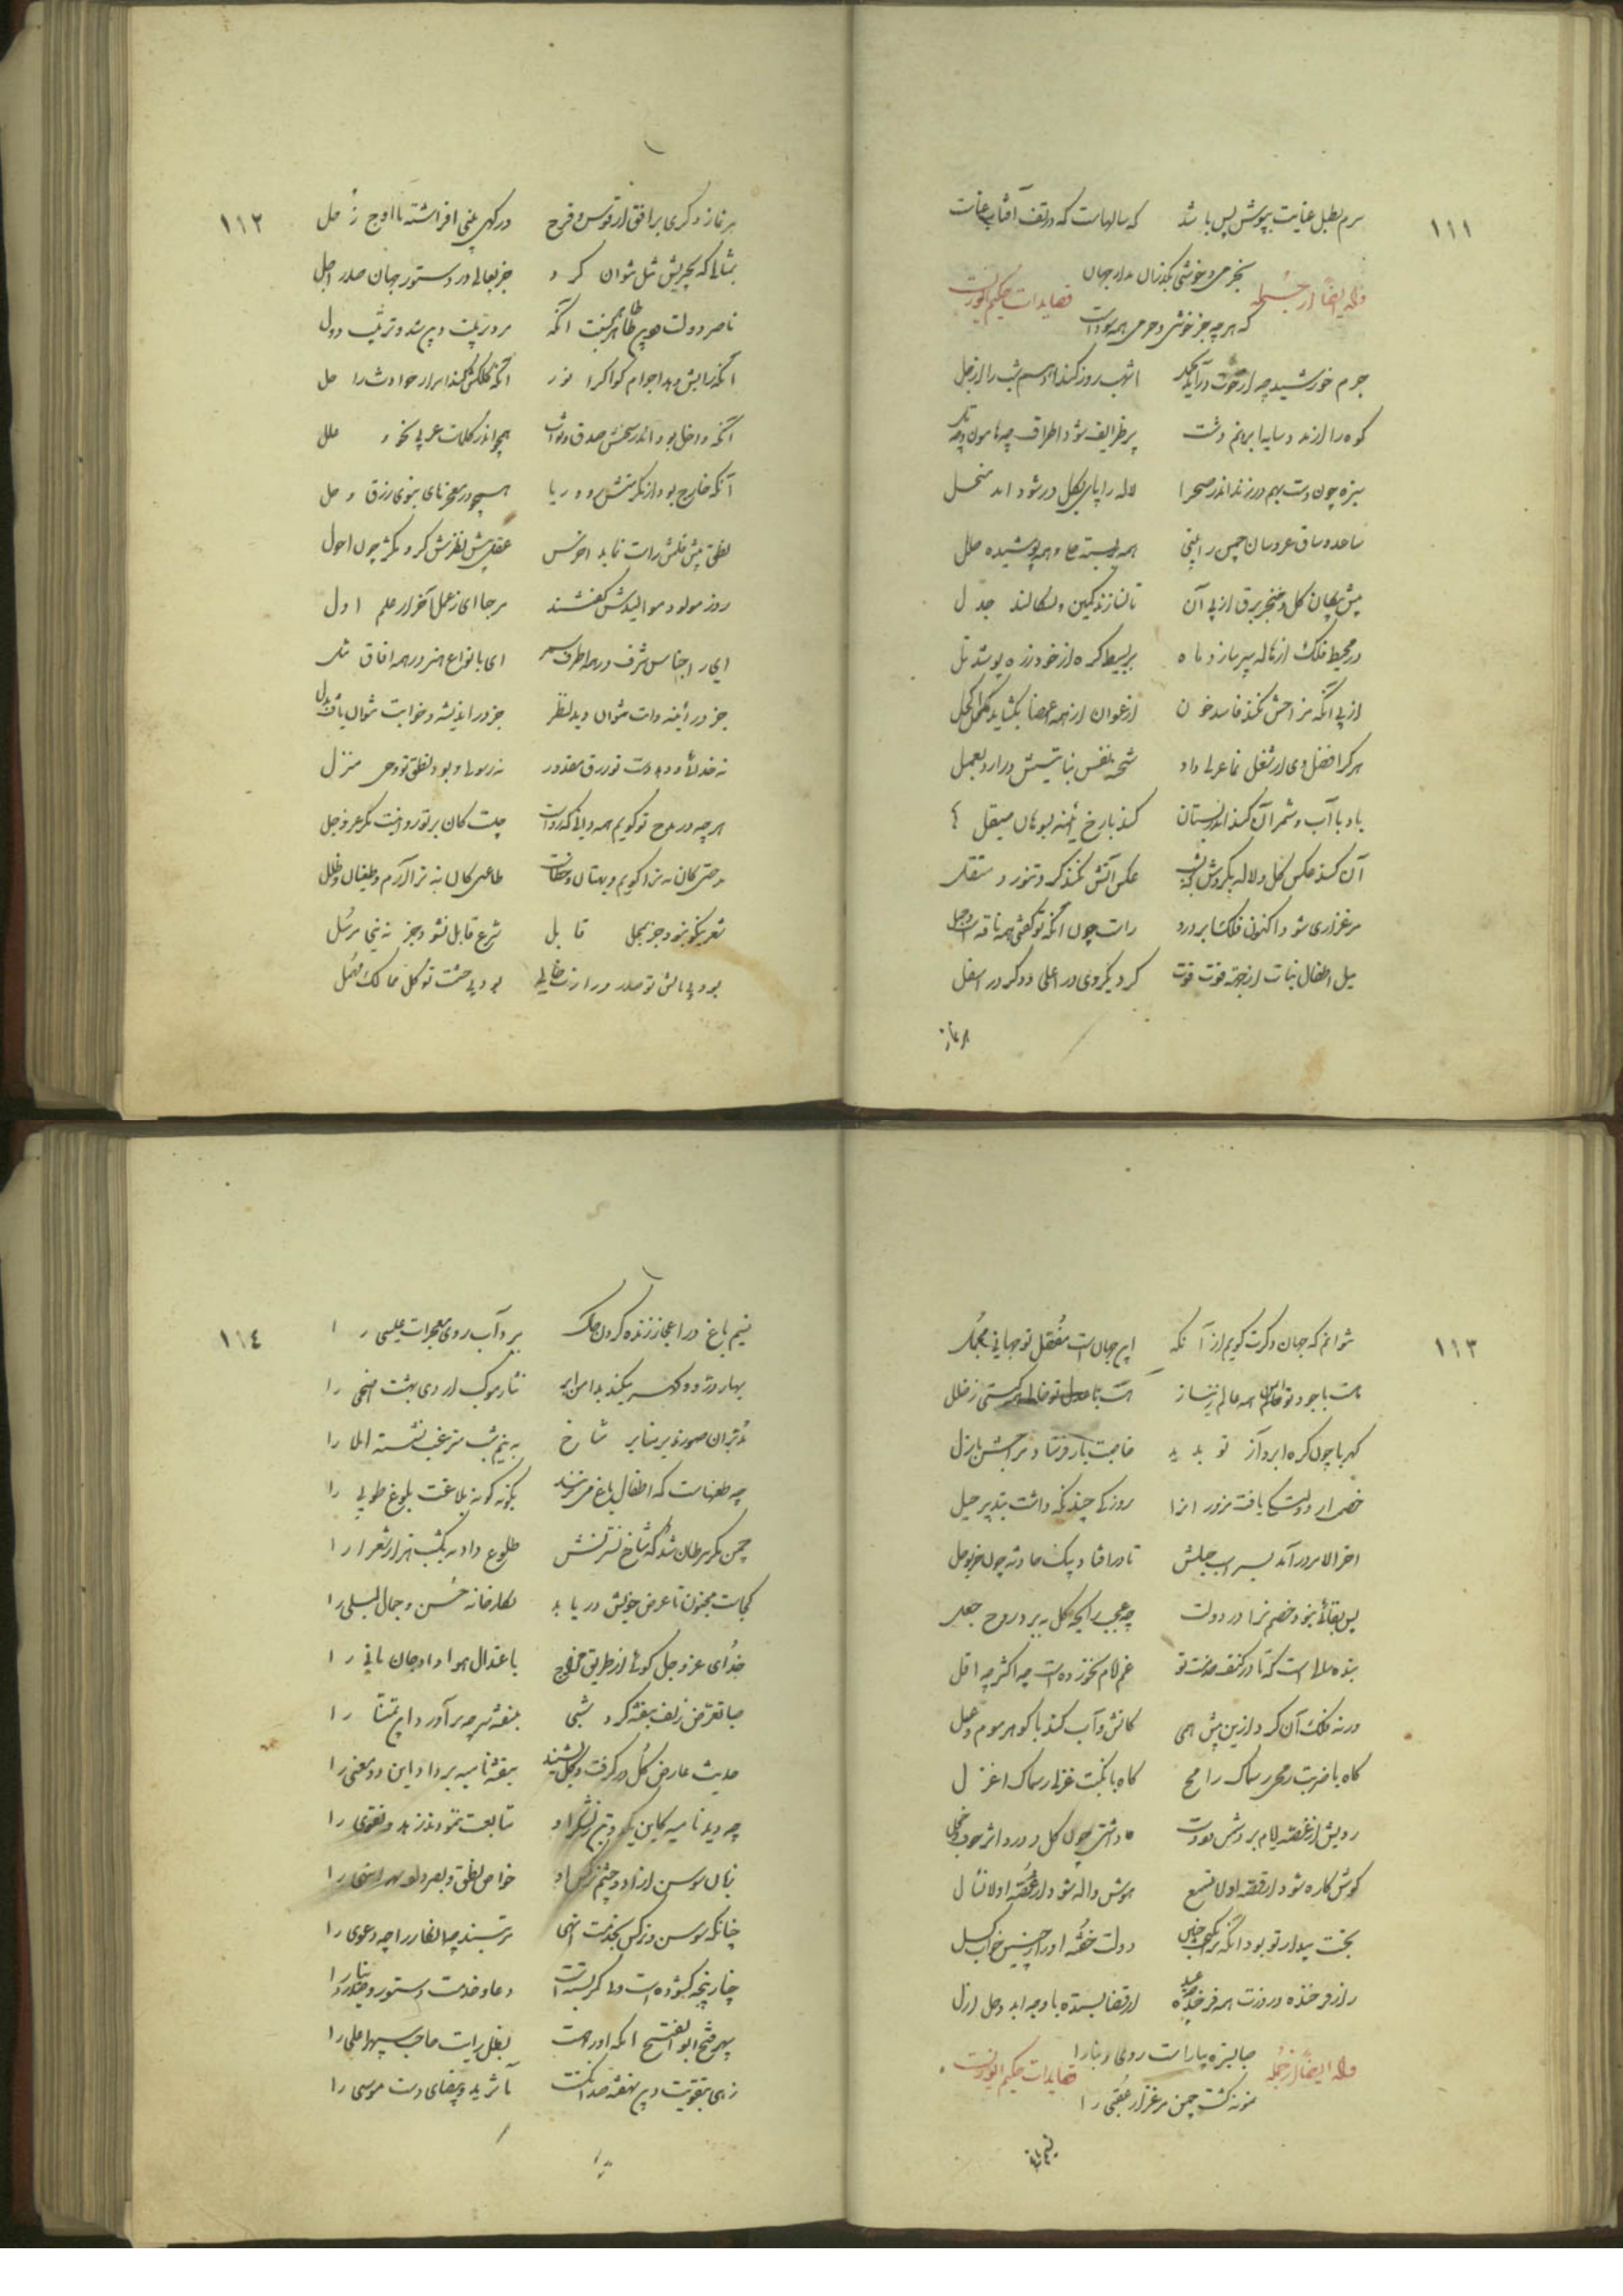 ۱۱۱
سرم بظل عنایت بپوش بس باشد که سالهاست که در تف آفتاب عناست
بخرمی و خوشی بگذران مدار جهان
وله ایضاً از جمله قصایدات حکیم انوریست
که هر چه جز خوشی و خرمی همه سوداست
جرم خورشید چو از حوت درآید بحمل اشهب روز کند ادهم شب را ارجل
کوه را از مدد سایه ابر و نم دشت پر طرایف شود اطراف چه هامون و چه تل
سبزه چون دست بهم درزند اندر صحرا لاله را پای بگل درشود اندر منهل
ساعد و ساق عروسان چمن را بینی همه بسته حلی و همه پوشیده حلل
پیش پیکان گل و خنجر برق از پی آن تا نسازند کمین و نسکالند جدل
در محیط فلک از هاله سپر سازد ماه بر بسیط کره از خود زره پوشد تل
از پی آنکه مزاجش نکند فاسد خون ارغوان از همه اعضا بگشاید اکحل
هر کرا فصل دی از شغل نما عزلی داد شحنه نفس نباتیش درآرد بعمل
باد با آب و شمر آن کند اندر بستان کند با رخ آئینه بسوهان صیقل
آن کند عکس گل و لاله بگردش بشب عکس آتش نکند گرد تنور و منقل
مرغزاری شود اکنون فلک و ابر درو راست چون آنکه تو گفتی همه ناقه است و جمل
میل اطفال نبات از جهة قوت و قوت کرد یکروی در اعلی و دگر در اسفل
هر نماز
۱۱۲
هر نماز دگری بر افق از قوس و قزح درگهی بینی افراشته تا اوج زحل
بمثالی که بچیزیش مثل نتوان کرد جز بعالی در دستور جهان صدر اجل
ناصر دولت و دین طاهر طاهر نسبت آنکه مر دین بنشت و پیرشد و ترتیب دول
آنکه رایش دهد اجرام کواکب را نور آنکه کلکش کند اسرار حوادث را حل
آنکه داخل بود اندر سخنش صدق و صواب همچو اندر کلمات عربی نحو و علل
آنکه خارج بود از مکرمتش روی و ریا همچو در معجزهای نبوی زرق و حیل
نطق پیش قلمش راست نماید اخرس عقل پیش نظرش کرد بکژ چون احول
روز مولود موالیدش گفتند مرحبا ای ز عمل آخر از علم اول
ای باجناس شرف در همه اطراف سمر ای بانواع هنر در همه آفاق مثل
جز در آئینه و آب نتوان دید نظیر جز در اندیشه و خواب نتوان یافت بدل
نه خدائی و دهد دست تو رزق مقدور نه رسولی و بود نطق تو وحی منزل
هر چه در مدح تو گویم همه دانی که رواست چیست کان بر تو روا نیست مگر عز و جل
مدحتی کان نه ترا گویم بهتان و خطاست طاعتی کان نه ترا آرم طغیان و ظلل
شعر نیکو نبود جز بمحل قابل شرع قابل نشود جز به نبی مرسل
بود بی بالش تو صدر وزارت خالی بود بی حشمت تو کل ممالک مهمل
۱۱۳
نتوانم که جهان دگرت گویم از آنکه این جهان است مفصل تو جهانی مجمل
هست با جود تو ایمن همه عالم ز نیاز هست با عدل تو خالی همه گیتی ز خلل
کهربا چون کره ابر و آز تو بدید خاصیت باز فرستاد مزاجش بازل
خصم ار دولتکی یافت مزور آنرا روزکی چند نگه داشت بتدبیر حیل
آخر الامر درآمد بسر اسب جیلش تا درافتاد بیک حادثه چون خر بوحل
پس بقائی نبود خصم ترا در دولت چه عجب رایحه گل ببرد روح جعل
بنده سالی است که تا در کنف خدمت تو غم ایام نخورده است چه اکثر چه اقل
ورنه با او فلک آن کرد ازین پیش همی کاتش و آب کند با گوهر موم و عسل
گاه با ضربت رمحی ز سماک رامح گاه با نکبت عزلی ز سماک اعزل
رویش از غصه ایام برو شش بودست
گوش کاره شود از قصه او لا تسمع هوش واله شود از غصه او لا تسأل
بخت بیدار تو بود آنکه بر انگیخت چنین دولت خفته او را ز چنین خواب کسل
روز فرخنده و روزت همه فرخنده عید از قضا بسته با وجه ابد وحی ازل
صبا بسبزه بیاراست روی دنیا را
وله ایضاً از جمله قصایدات حکیم انوریست
نمونه گشت چمن مرغزار عقبی را
نسیم باغ
۱۱٤
نسیم باغ در اعجاز زنده کردن خاک ببرد آب روی معجزات عیسی را
بهار در و گهر میکند بدامن ابر نثار موکب اردی بهشت و اضحی را
مذکران طیور بر منابر شاخ ز نیم شب مترصد نشسته املا را
چه طعنهاست که اطفال باغ می نزنند بگونه گونه بلاغت بلوغ طوبی را
چمن مگر سرطان شد که شاخ نسترنش طلوع داده بیک شب هزار شعری را
کجاست مجنون تا عرض خویش دریابد نگارخانه حسن و جمال لیلی را
خدای عز و جل گوئی از طریق مزاج باعتدال هوا داد جان مانی را
صبا تعرض زلف بنفشه کرد شبی بنفشه سر چو برآورد این تمنا را
حدیث عارض گل درگرفت و لاله شنید بنفشه نامیه برداد این دو معنی را
چه دید نامیه کاین یک دو تن ز لشکر او متابعت ننمودند زهد و تقوی را
زبان سوسن آزاد و چشم نرگس را خواص نطق و بصر داد مر انهی را
چنانکه سوسن و نرگس بخدمت انهی مرتبند چه انکار را چه دعوی را
چنار پنجه گشوده است و نی کمر بسته است دعا و خدمت دستور و صدر دنیا را
سپهر فتح ابوالفتح آنکه او را هست بظل رایت صاحب سپهر اعلی را
زهی بتقویت دین نهفته صد انگشت مآثر ید بیضای دست موسی را